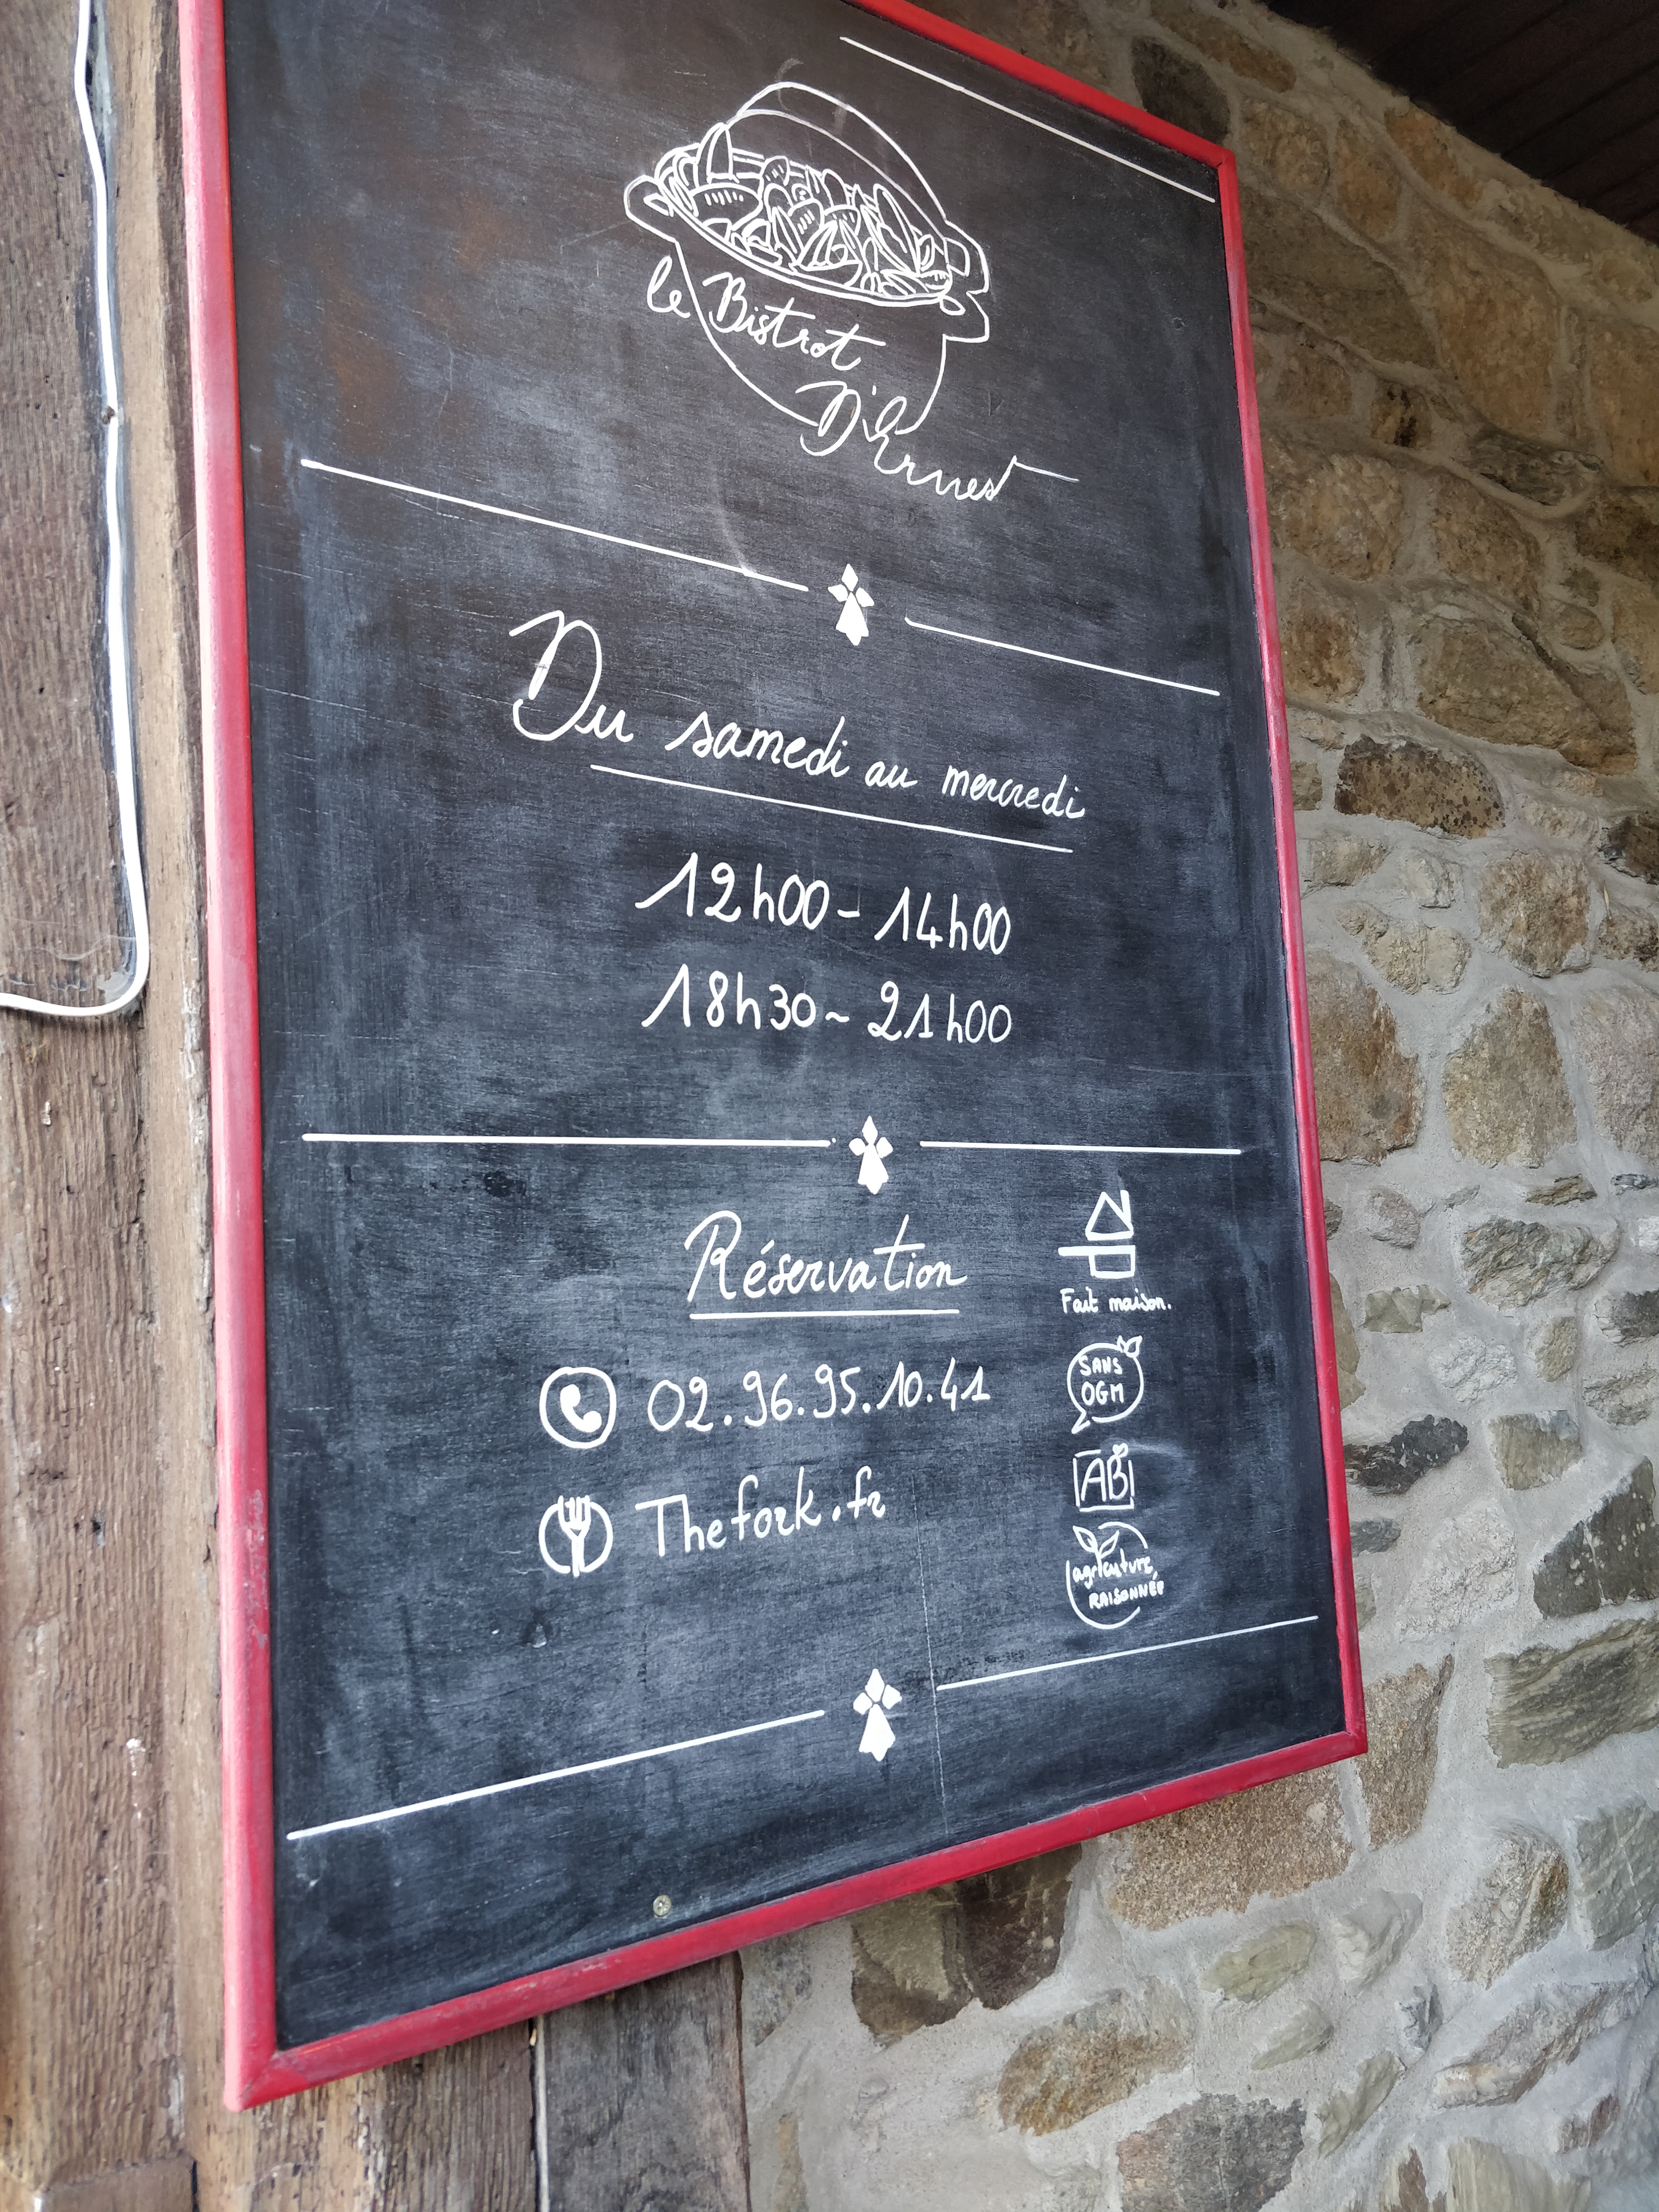 le Bistrot
D'Ernest
Du samedi au mercredi
12h00 - 14h00
18h30 ~ 21h00
Réservation
Fait maison.
02.96.95.10.41
SANS
OGM
Thefork.fr
AB
agriculture
RAISONNÉE